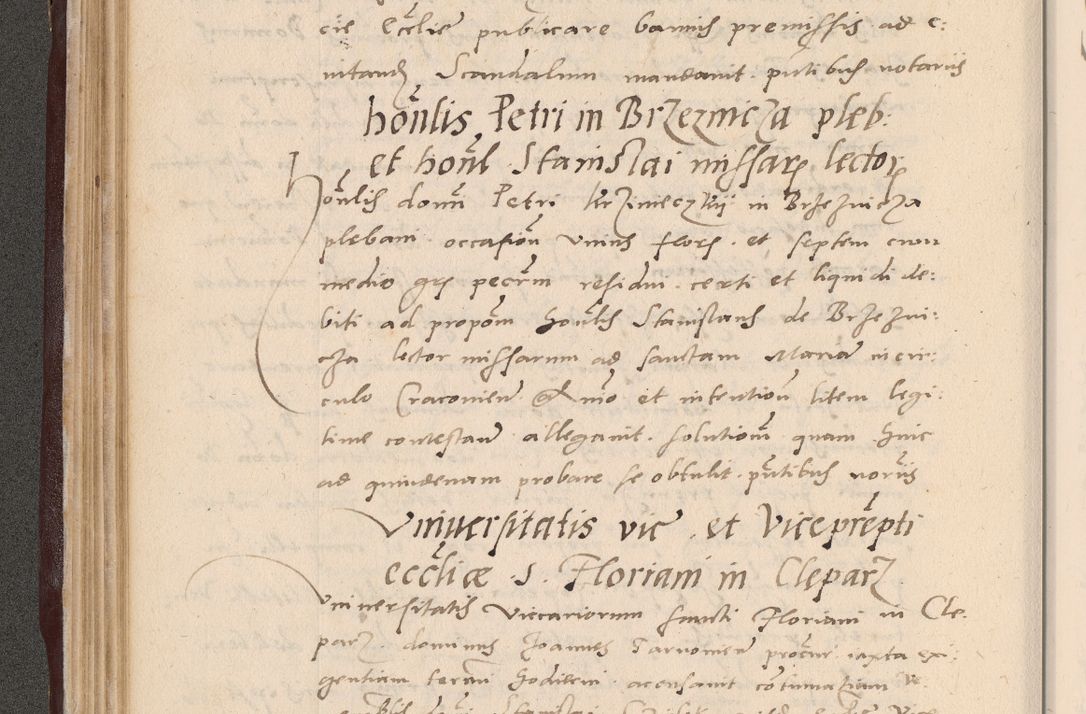 cie Ecclie publicare bannis premissis ad e:
uitand Scandalum mandauit putibus notariis
honlis Petri in Brzeznicza pleb:
et honl Stanislai missar lector
Honlis domi Petri Krzineczkij in Brzeznicza
plebani occasion vnius flor et septem cum
medio grs pecrm residui certi et liquidi de:
biti ad propom honlis Stanislaus de Brzezni:
cza lector missarum ad sanctam Mariam in cir:
culo Cracouien Animo et intention litem legi:
time contestan allegauit solutiom quam huic
ad quindenam probare se obtulit putibus noriis
Vniuersitatis vic et Viceprepti
eccliæ S. Floriani in Cleparz
Vniuersitatis Viccariorum sancti Floriani in Cle:
parz dominus Joannes Tarnowien procur iuxta exi:
gentiam termi hodierni acusauit contumatiam Ve: